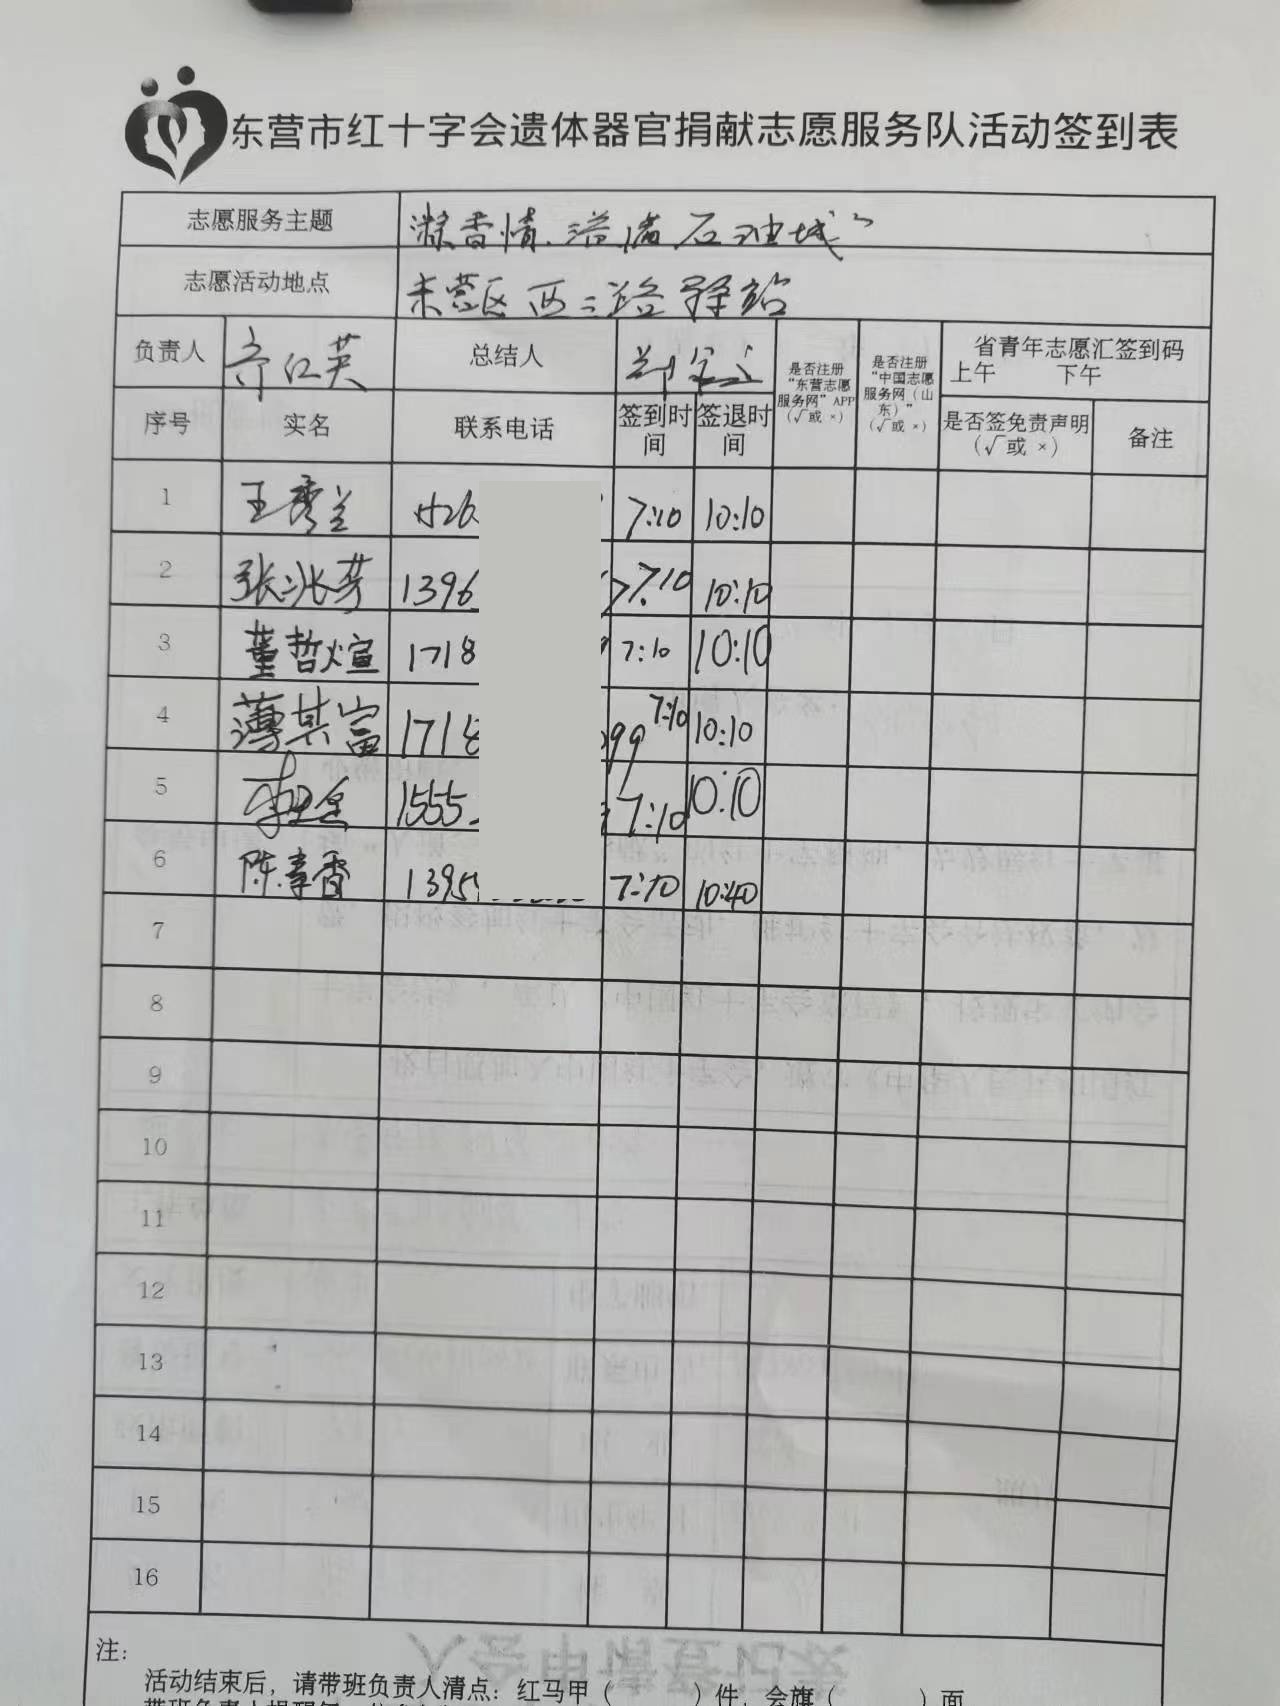 东营市红十字会遗体器官捐献志愿服务队活动签到表
志愿服务主题 粽香情.溢满石油城"
志愿活动地点 东营区西二路驿站
负责人 齐红英 总结人 是否注册“东营志愿服务网”APP（√或 ×） 是否注册“中国志愿服务网（山东）”（√或 ×） 省青年志愿汇签到码
上午 下午
序号 实名 联系电话 签到时间 签退时间 是否签免责声明（√或 ×） 备注
1 王秀兰 1526 7:10 10:10
2 张兆芬 1396 7:10 10:10
3 董哲煊 1718 7:10 10:10
4 薄其富 1718 99 7:10 10:10
5 1555 7:10 10:10
6 陈春香 1395 7:10 10:40
7
8
9
10
11
12
13
14
15
16
注：
活动结束后，请带班负责人清点：红马甲（ ）件，会旗（ ）面